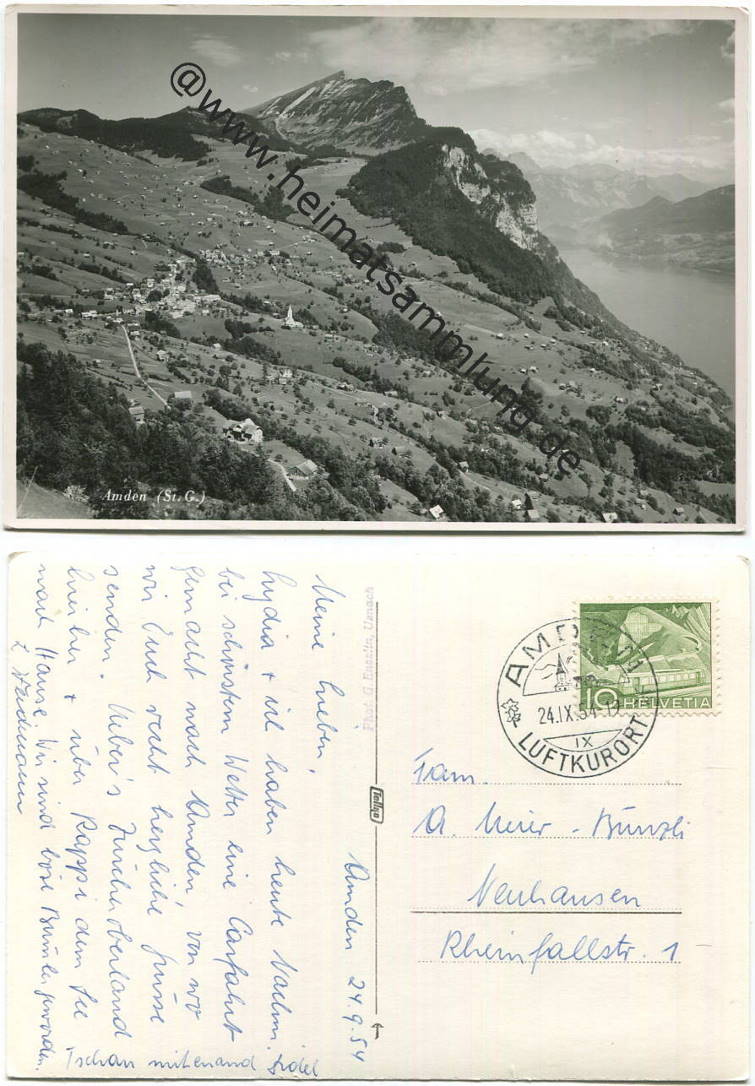 @www.heimatsammlung.de
Amden (St. G.)
Amden 24.9.54
Meine Lieben,
Lydia + ich haben heute Nachm.
bei schönstem Wetter eine Carfahrt
gemacht nach Amden, von wo
wir Euch recht herzliche Grüsse
senden. Ueber's Zürcheroberland
hierher + über Rappi dem See
nach Hause. Wir sind
Tschau mitenand
Phot. G.
Uznach
AMDEN
24.IX.54
IX
LUFTKURORT
10 HELVETIA
Fam.
A. Meier-Bünzli
Neuhausen
Rheinfallstr. 1